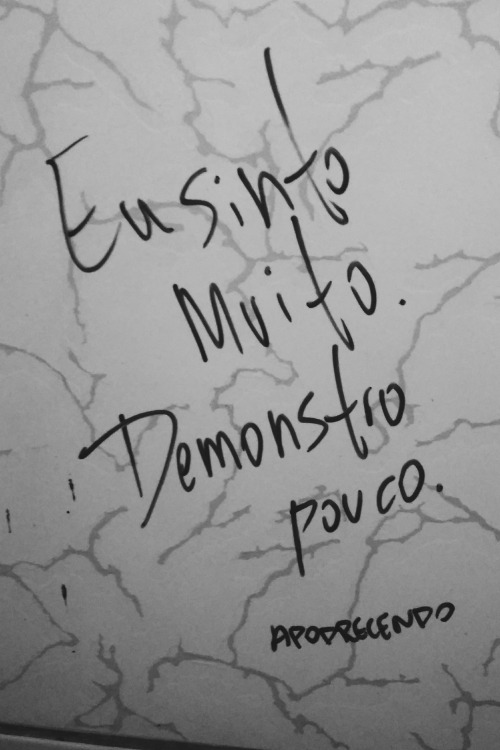 Eu sinto
Muito.
Demonstro
pouco.
APODRECENDO